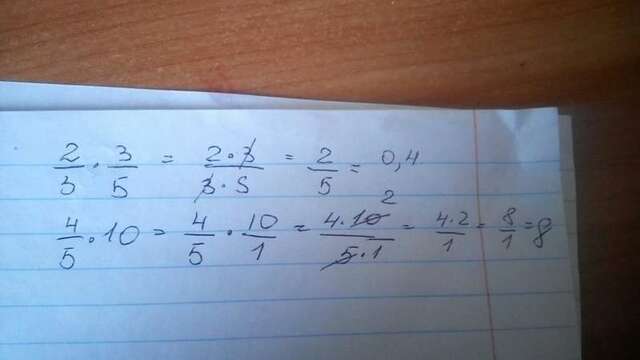 2/3 · 3/5 = 2·3/3·5 = 2/5 = 0,4
4/5 · 10 = 4/5 · 10/1 = 4·10 2/5·1 = 4·2/1 = 8/1 = 8